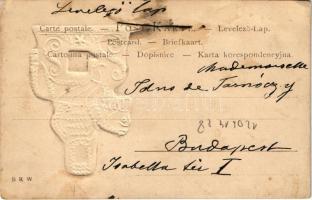 Levelező Lap
Carte postale. — Post Karte. — Levelező-Lap.
Postcard. — Briefkaart.
Cartolina postale — Dopisnice — Karta korespondencyjna.
Mademoiselle
Idus de Tarnóczy
Budapest
Isabella tér I
B. R. W.